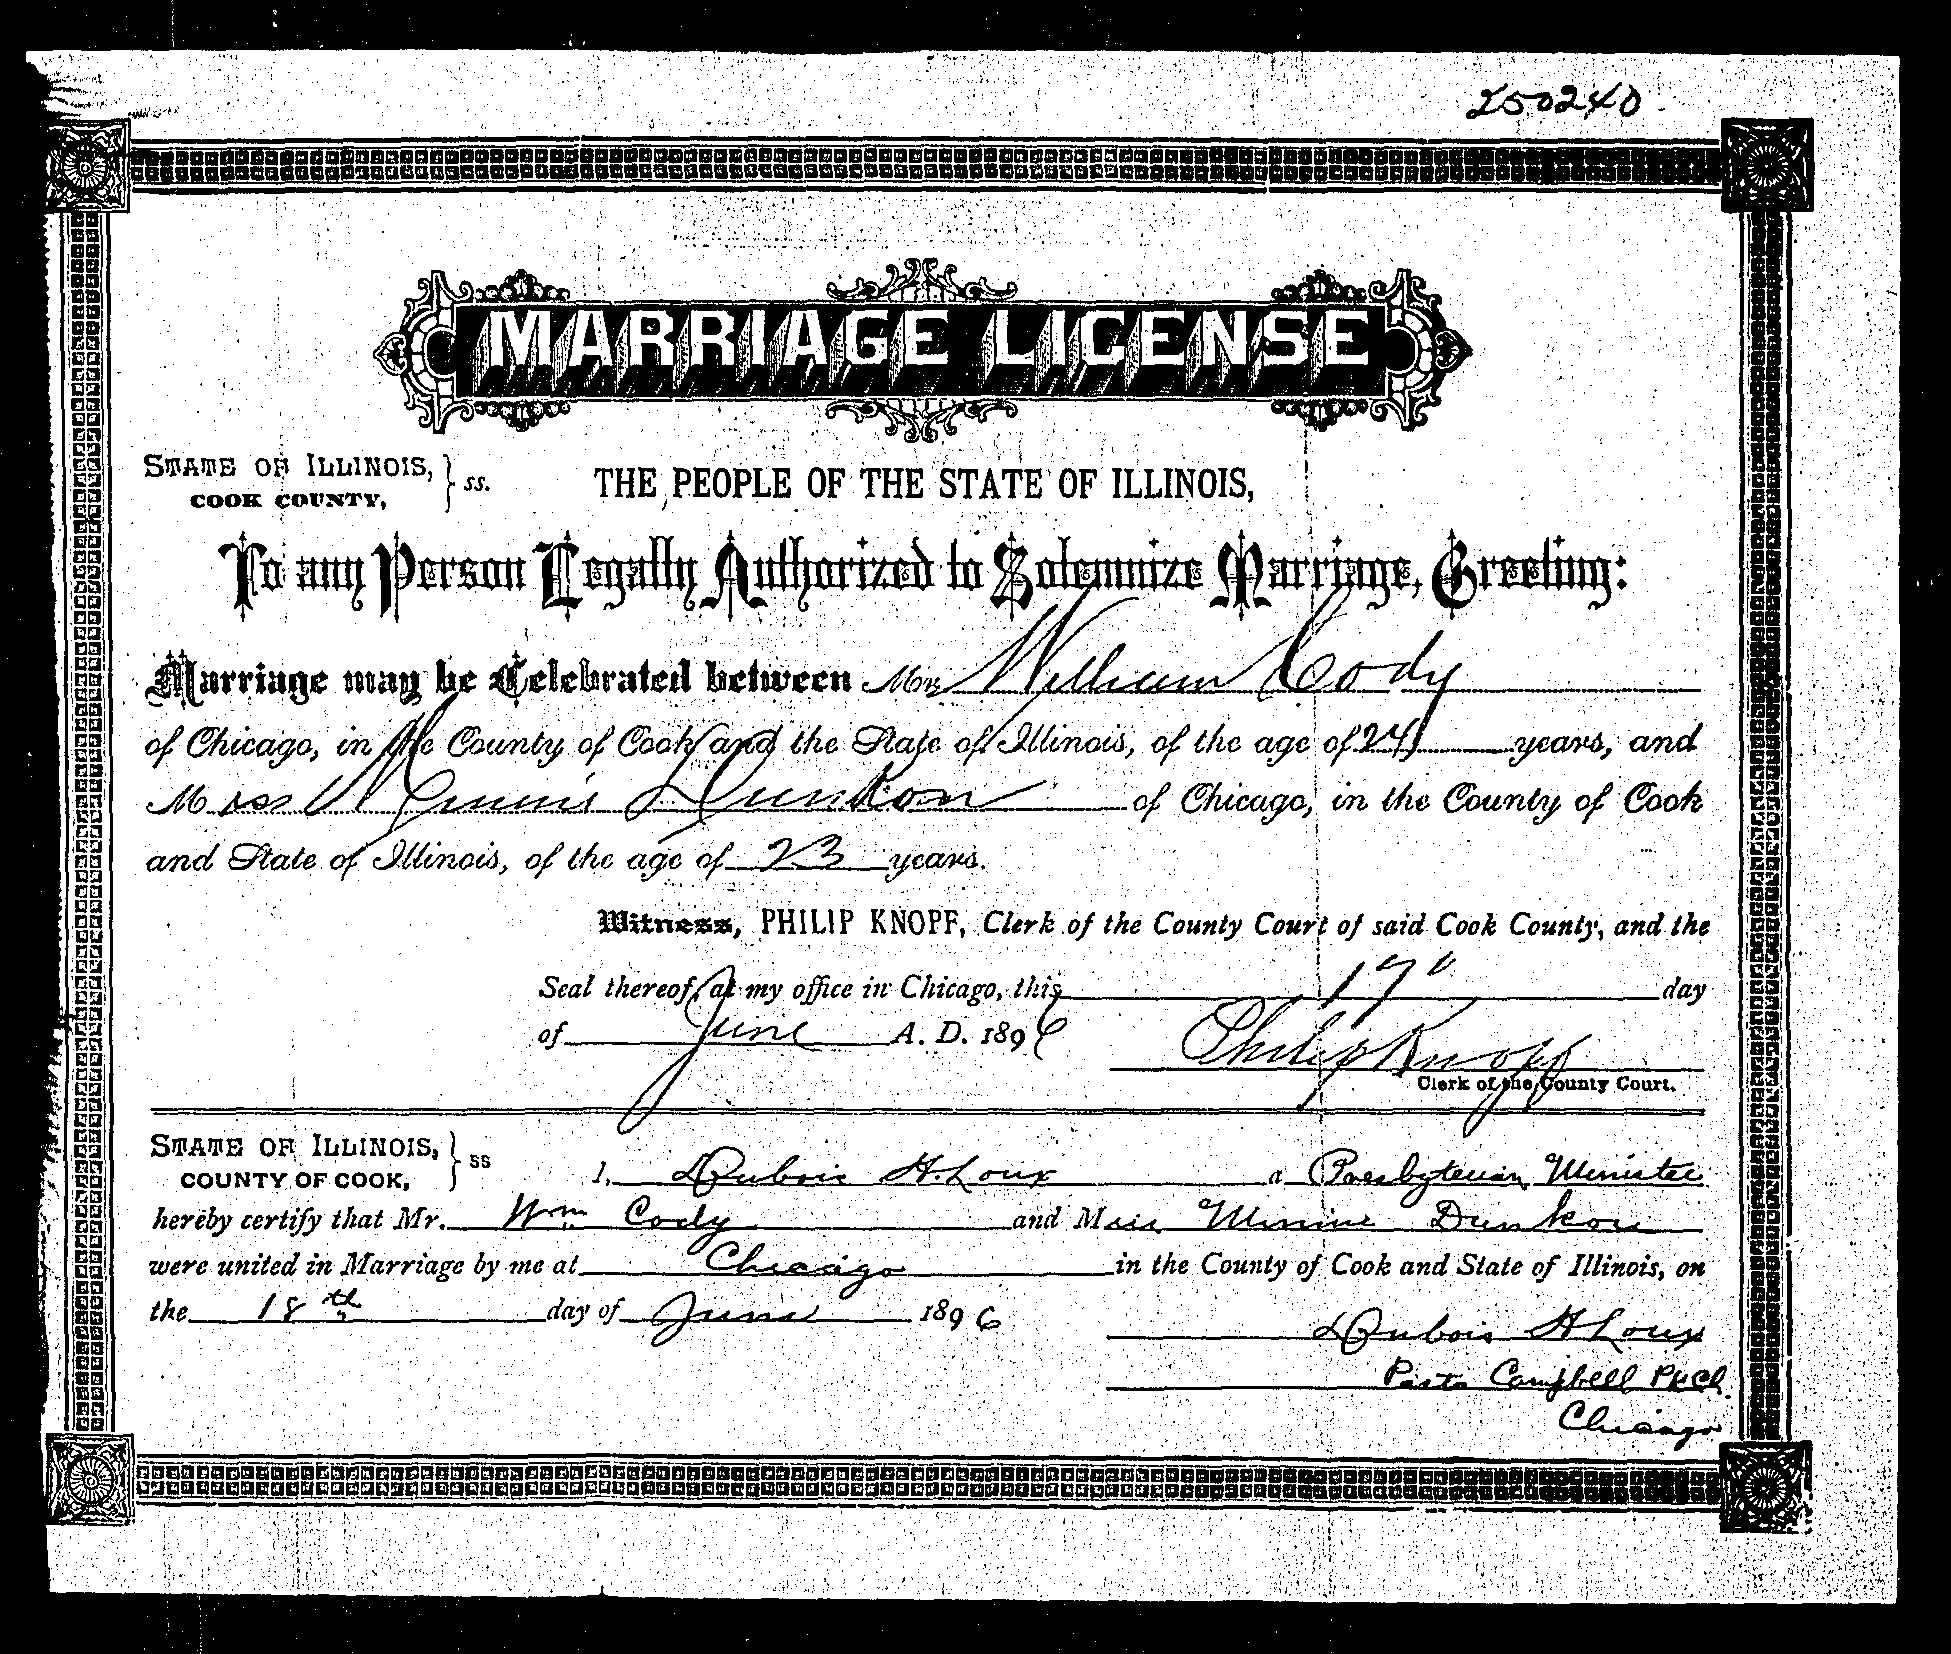 250240
MARRIAGE LICENSE
STATE OF ILLINOIS, } ss.
COOK COUNTY,
THE PEOPLE OF THE STATE OF ILLINOIS,
To any Person Legally Authorized to Solemnize Marriage, Greeting:
Marriage may be Celebrated between Mr. William Cody
of Chicago, in the County of Cook and the State of Illinois, of the age of 24 years, and
Miss Minnie Dunkon of Chicago, in the County of Cook
and State of Illinois, of the age of 23 years.
Witness, PHILIP KNOPF, Clerk of the County Court of said Cook County, and the
Seal thereof, at my office in Chicago, this 17" day
of June A. D. 1896
Philip Knopf
Clerk of the County Court.
STATE OF ILLINOIS, } ss
COUNTY OF COOK,
I, Dubois H. Loux a Presbyterian Minister
hereby certify that Mr. Wm Cody and Miss Minnie Dunkon
were united in Marriage by me at Chicago in the County of Cook and State of Illinois, on
the 18th day of June 1896
Dubois H Loux
Campbell
Chicago